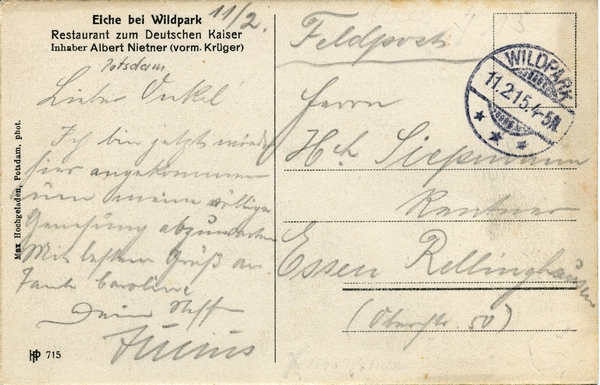 Eiche bei Wildpark
Restaurant zum Deutschen Kaiser
Inhaber Albert Nietner (vorm. Krüger)
11/2.
Potsdam
Lieber Onkel
Ich bin jetzt wieder
hier angekommen
um meine völlige
Genesung abzuwarten
Mit bestem Gruß an
Tante Caroline
Dein Neff
Julius
Max Hochgeladen, Potsdam, phot.
HP 715
Feldpost
WILDPARK
11.2.15.4-5N.
Herrn
Hch Siepmann
Rentner
Essen Rellinghausen
(Oberstr. 50)